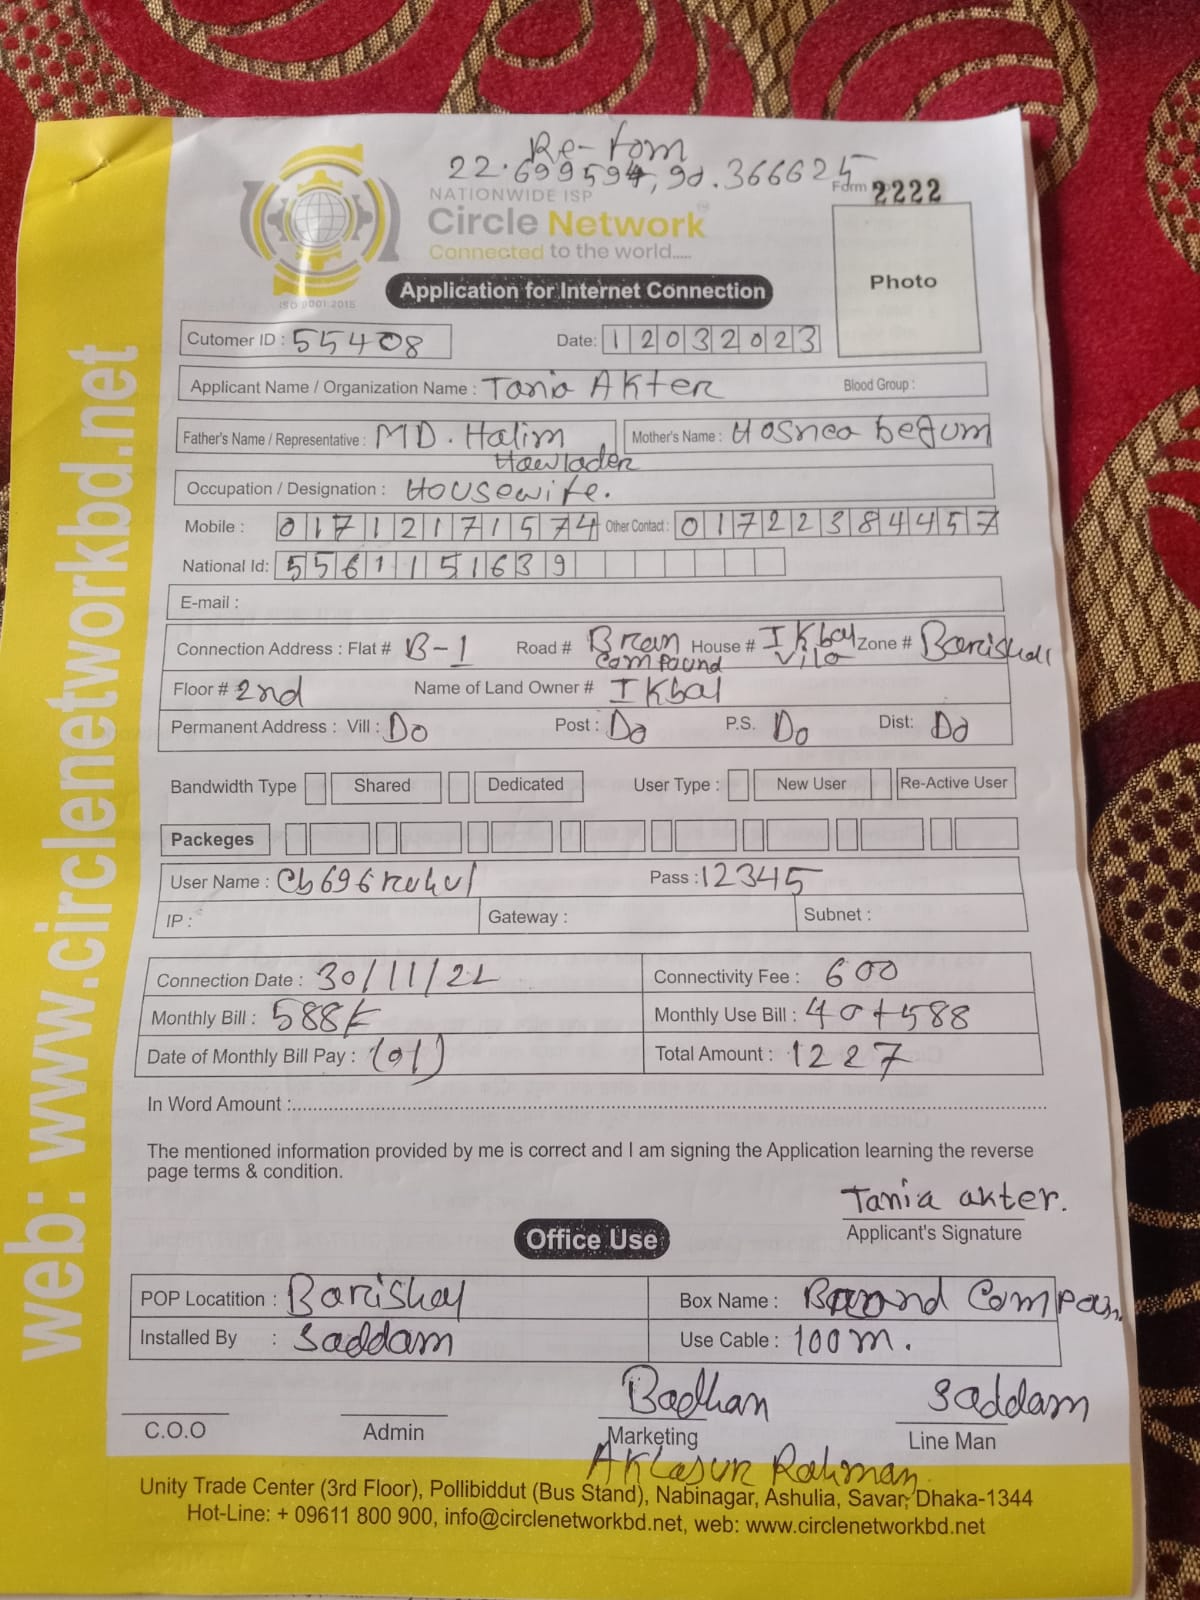 Re-form
22.699594, 90.366625
NATIONWIDE ISP
Form 2222
Circle Network
Connected to the world.....
ISO 9001:2015
Application for Internet Connection
Photo
Cutomer ID : 55408 Date: 12032023
Applicant Name / Organization Name : Tania Akter Blood Group :
Father's Name / Representative : MD. Halim Howlader Mother's Name : Hosnea begum
Occupation / Designation : Housewife.
Mobile : 01712171574 Other Contact : 01722384457
National Id: 5561151639
E-mail :
Connection Address : Flat # B-1 Road # Brown Compound House # Ikbal Vila Zone # Barishall
Floor # 2nd Name of Land Owner # Ikbal
Permanent Address : Vill : Do Post : Do P.S. Do Dist: Do
Bandwidth Type Shared Dedicated User Type : New User Re-Active User
Packeges
User Name : Cb696ruhul Pass : 12345
IP : Gateway : Subnet :
Connection Date : 30/11/22 Connectivity Fee : 600
Monthly Bill : 588 Monthly Use Bill : 40+588
Date of Monthly Bill Pay : (01) Total Amount : 1227
In Word Amount :
The mentioned information provided by me is correct and I am signing the Application learning the reverse
page terms & condition.
Tania akter.
Applicant's Signature
Office Use
POP Locatition : Barishal Box Name : Compoun
Installed By : Saddam Use Cable : 100m.
Badhan Saddam
C.O.O Admin Marketing Line Man
Aklasur Rahman
Unity Trade Center (3rd Floor), Pollibiddut (Bus Stand), Nabinagar, Ashulia, Savar, Dhaka-1344
Hot-Line: + 09611 800 900, info@circlenetworkbd.net, web: www.circlenetworkbd.net
web: www.circlenetworkbd.net